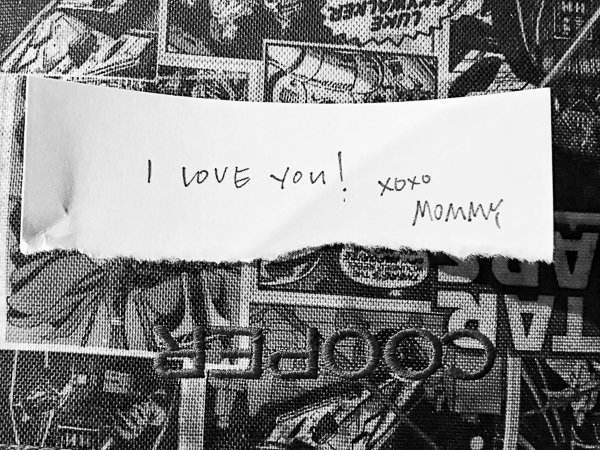 LUKE
SKYWALKER
I LOVE YOU! XOXO
MOMMY
STAR
WARS
COOPER